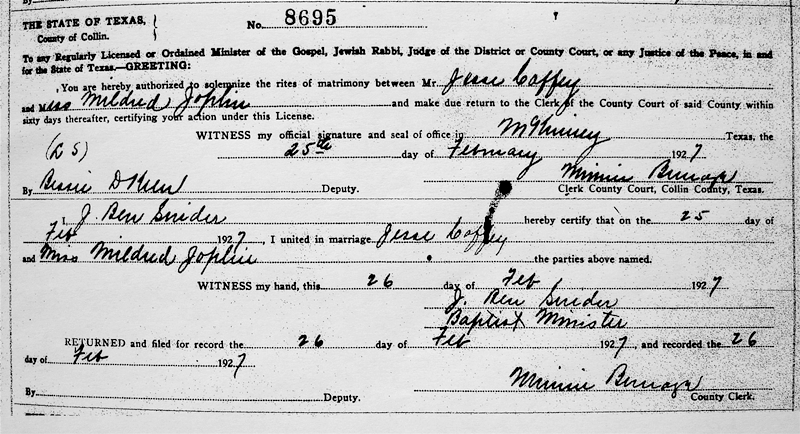 THE STATE OF TEXAS,
County of Collin.
No. 8695
To any Regularly Licensed or Ordained Minister of the Gospel, Jewish Rabbi, Judge of the District or County Court, or any Justice of the Peace, in and
for the State of Texas.—GREETING:
You are hereby authorized to solemnize the rites of matrimony between Mr. Jesse Coffey
and Miss Mildred Joplin and make due return to the Clerk of the County Court of said County within
sixty days thereafter, certifying your action under this License.
WITNESS my official signature and seal of office in McKinney Texas, the
(L S) 25th day of February 1927
By Bessie Deputy. Minnie
Clerk County Court, Collin County, Texas.
I, J. Ben Snider hereby certify that on the 25 day of
Feb 1927, I united in marriage Jesse Coffey
and Miss Mildred Joplin the parties above named.
WITNESS my hand, this 26 day of Feb 1927
J. Ben Snider
Baptist Minister
RETURNED and filed for record the 26 day of Feb 1927, and recorded the 26
day of Feb 1927
Minnie
By Deputy. County Clerk.